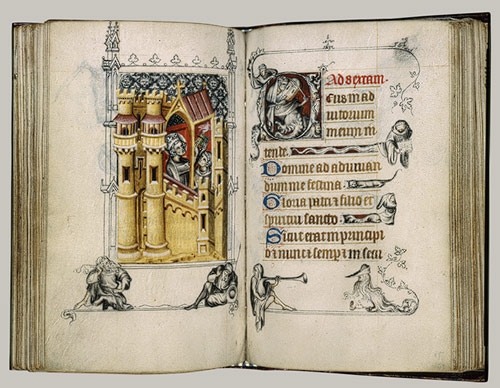 Ad sextam
Deus in ad
iutorium
meum in
tende.
Domine ad adiuuan
dum me festina.
Gloria patri et filio et
spiritui sancto.
Sicut erat in principi
o et nunc et semper et in secu